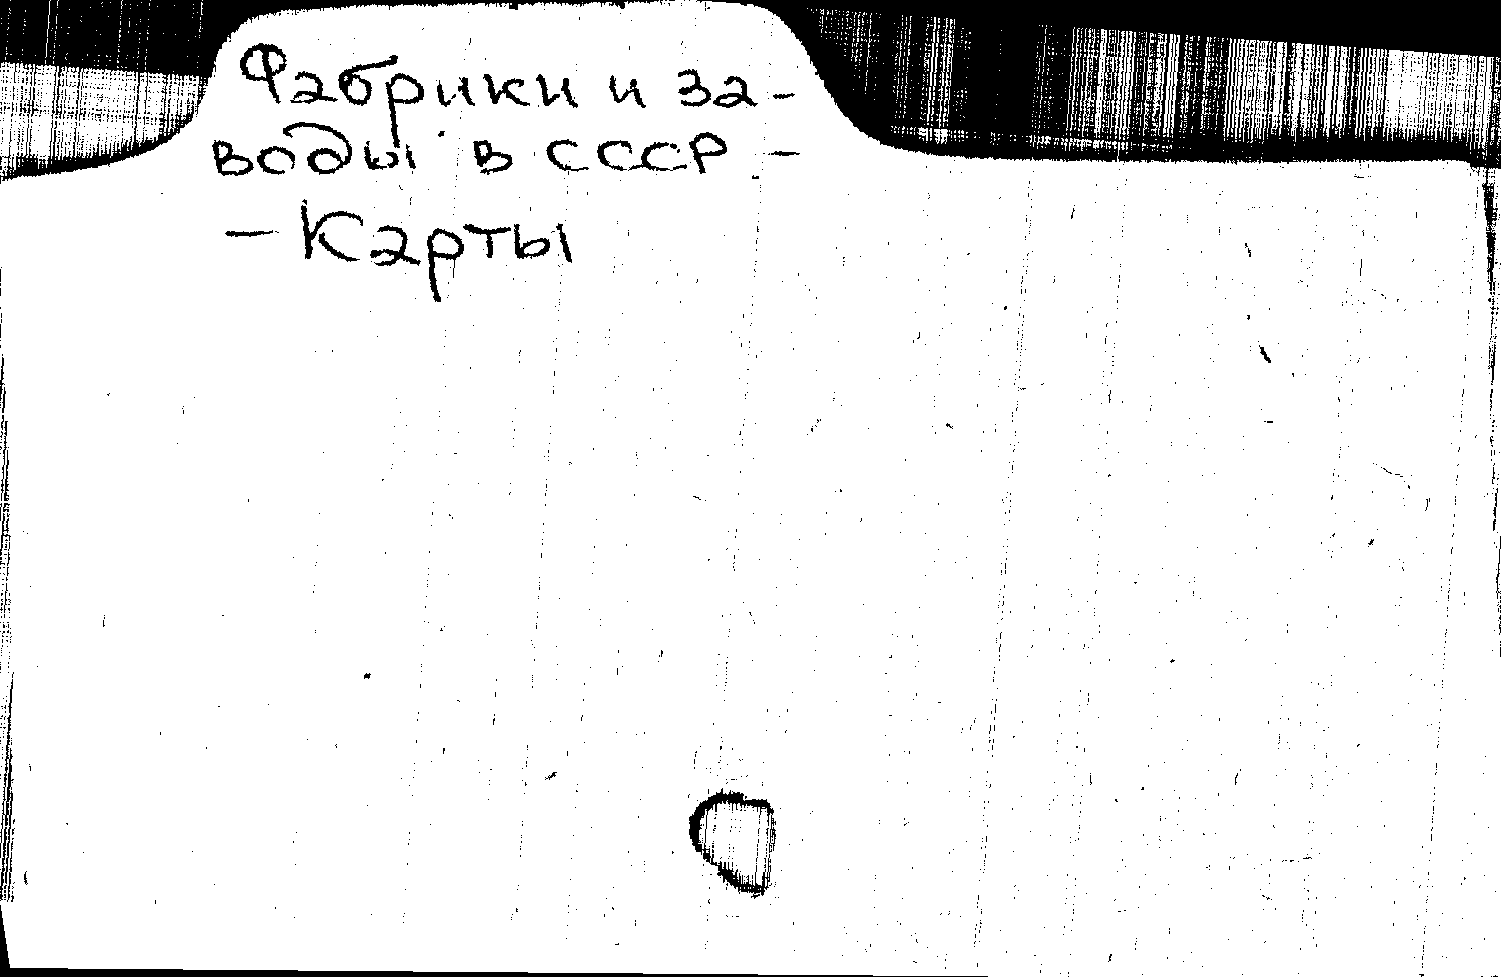 Фабрики и за-
воды в СССР -
- Карты